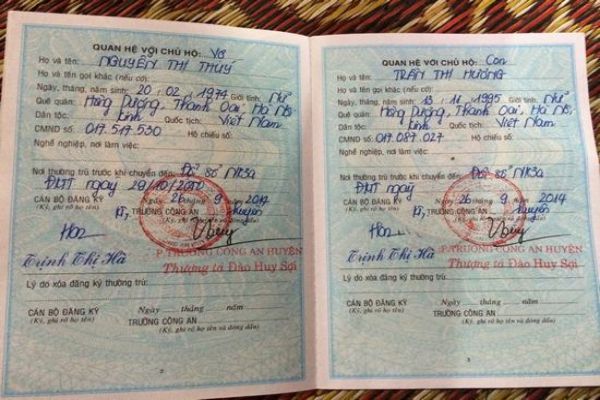 QUAN HỆ VỚI CHỦ HỘ: Vợ
Họ và tên: NGUYỄN THỊ THUÝ
Họ và tên gọi khác (nếu có):
Ngày, tháng, năm sinh: 20.02.1974 Giới tính: Nữ
Quê quán: Hồng Dương, Thanh Oai, Hà Nội
Dân tộc: kinh Quốc tịch: Việt Nam
CMND số: 017.517.530 Hộ chiếu số:
Nghề nghiệp, nơi làm việc:
Nơi thường trú trước khi chuyển đến: Đổi sổ NK3a
ĐKTT ngày 29/10/2010
Ngày 26 tháng 9 năm 2014
CÁN BỘ ĐĂNG KÝ
(Ký, ghi rõ họ tên)
KT, TRƯỞNG CÔNG AN huyện
Trịnh Thị Hà
P.TRƯỞNG CÔNG AN HUYỆN
Thượng tá Đào Huy Sợi
Lý do xóa đăng ký thường trú:
Ngày tháng năm
CÁN BỘ ĐĂNG KÝ
(Ký, ghi rõ họ tên)
TRƯỞNG CÔNG AN
(Ký, ghi rõ họ tên và đóng dấu)
2
QUAN HỆ VỚI CHỦ HỘ: Con
Họ và tên: TRẦN THỊ HƯƠNG
Họ và tên gọi khác (nếu có):
Ngày, tháng, năm sinh: 13.11.1995 Giới tính: Nữ
Quê quán: Hồng Dương, Thanh Oai, Hà Nội
Dân tộc: kinh Quốc tịch: Việt Nam
CMND số: 017.087.027 Hộ chiếu số:
Nghề nghiệp, nơi làm việc:
Nơi thường trú trước khi chuyển đến: Đổi sổ NK3a
ĐKTT ngày
Ngày 26 tháng 9 năm 2014
CÁN BỘ ĐĂNG KÝ
(Ký, ghi rõ họ tên)
KT, TRƯỞNG CÔNG AN huyện
Trịnh Thị Hà
P.TRƯỞNG CÔNG AN HUYỆN
Thượng tá Đào Huy Sợi
Lý do xóa đăng ký thường trú:
Ngày tháng năm
CÁN BỘ ĐĂNG KÝ
(Ký, ghi rõ họ tên)
TRƯỞNG CÔNG AN
(Ký, ghi rõ họ tên và đóng dấu)
3